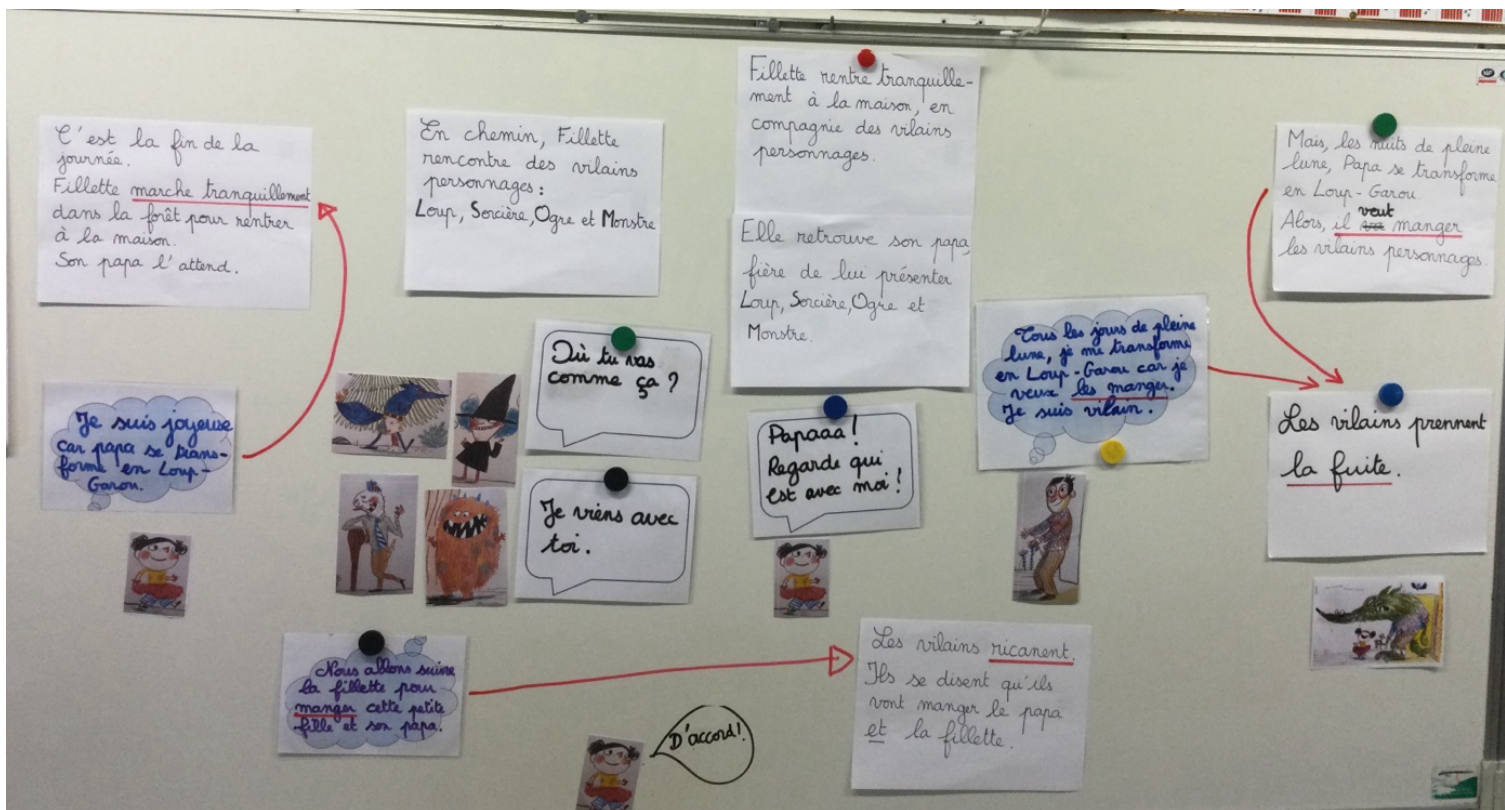 C'est la fin de la
journée.
Fillette marche tranquillement
dans la forêt pour rentrer
à la maison.
Son papa l'attend.
En chemin, Fillette
rencontre des vilains
personnages :
Loup, Sorcière, Ogre et Monstre
Fillette rentre tranquille-
ment à la maison, en
compagnie des vilains
personnages.
Elle retrouve son papa,
fière de lui présenter
Loup, Sorcière, Ogre et
Monstre.
Mais, les nuits de pleine
lune, Papa se transforme
en Loup-Garou.
veut
Alors, il va manger
les vilains personnages.
Je suis joyeuse
car papa se trans-
forme en Loup-
Garou.
Où tu vas
comme ça ?
Je viens avec
toi.
Papaaa !
Regarde qui
est avec moi !
Tous les jours de pleine
lune, je me transforme
en Loup-Garou car je
veux les manger.
Je suis vilain.
Les vilains prennent
la fuite.
Nous allons suivre
la fillette pour
manger cette petite
fille et son papa.
D'accord !
Les vilains ricanent.
Ils se disent qu'ils
vont manger le papa
et la fillette.